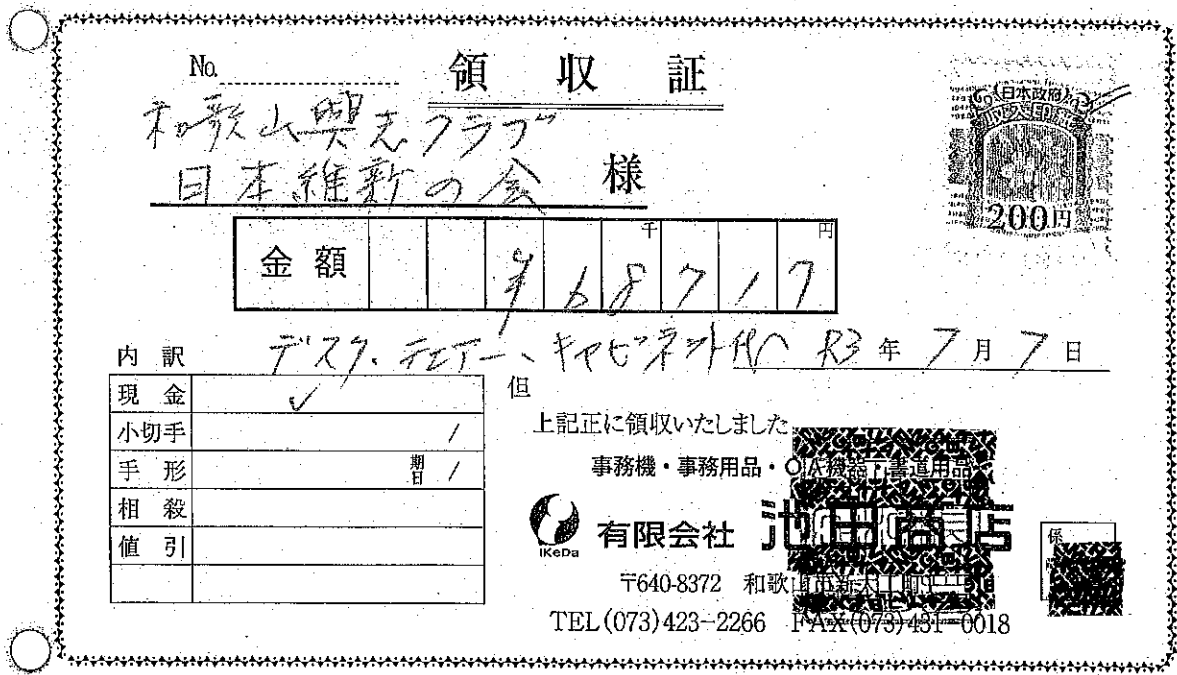 No. 領収証
和歌山興志クラブ
日本維新の会 様
日本政府
収入印紙
200円
金額 千 円
¥68717
デスク、チェアー、キャビネット代 R3年7月7日
内訳
但
現金 ✓
小切手 /
手形 期日 /
相殺
値引
上記正に領収いたしました
事務機・事務用品・OA機器・書道用品
IKeDa
有限会社 池田商店
〒640-8372 和歌山市新大工町
TEL(073)423-2266 FAX(073)431-0018
係